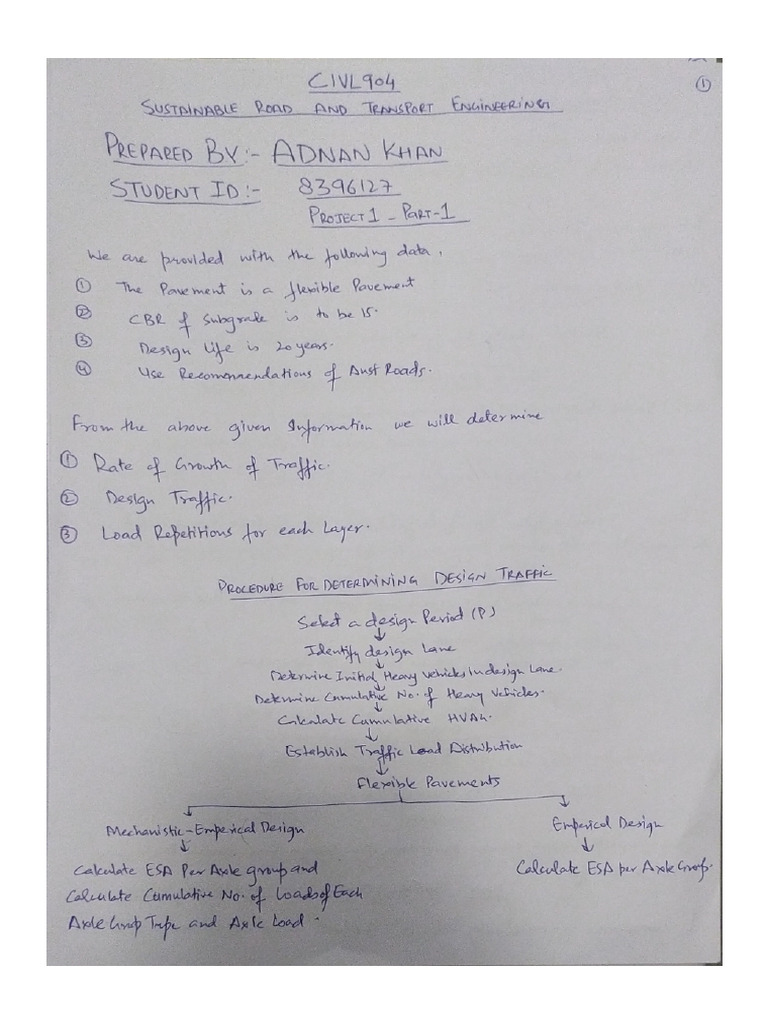 CIVL904
①
SUSTAINABLE ROAD AND TRANSPORT ENGINEERING
PREPARED BY:- ADNAN KHAN
STUDENT ID:- 8396127
PROJECT 1 - PART-1
We are provided with the following data,
① The Pavement is a flexible Pavement
② CBR of Subgrade is to be 15.
③ Design life is 20 years.
④ Use Recommendations of Aust Roads.
From the above given Information we will determine
① Rate of Growth of Traffic.
② Design Traffic.
③ Load Repetitions for each Layer.
PROCEDURE FOR DETERMINING DESIGN TRAFFIC
Select a design Period (P)
Identify design Lane
Determine Initial Heavy Vehicles In design Lane.
Determine Cumulative No. of Heavy Vehicles.
Calculate Cumulative HVAG.
Establish Traffic Load Distribution
Flexible Pavements
Mechanistic-Emperical Design
Emperical Design
Calculate ESA Per Axle group and
Calculate ESA per Axle Group.
Calculate Cumulative No. of Loads of Each
Axle Group Type and Axle Load.